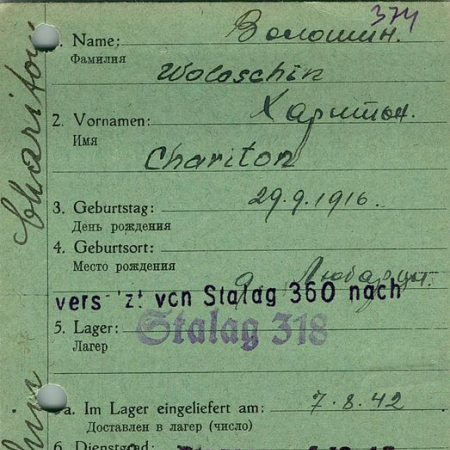 374
1. Name: Волошин.
Фамилия
Woloschin
2. Vornamen: Харитон.
Имя
Chariton
3. Geburtstag: 29.9.1916.
День рождения
4. Geburtsort:
Место рождения
vers 'zt von Stalag 360 nach
5. Lager: Stalag 318
Лагер
a. Im Lager eingeliefert am: 7.8.42
Доставлен в лагер (число)
6. Dienstgrad:
Chariton